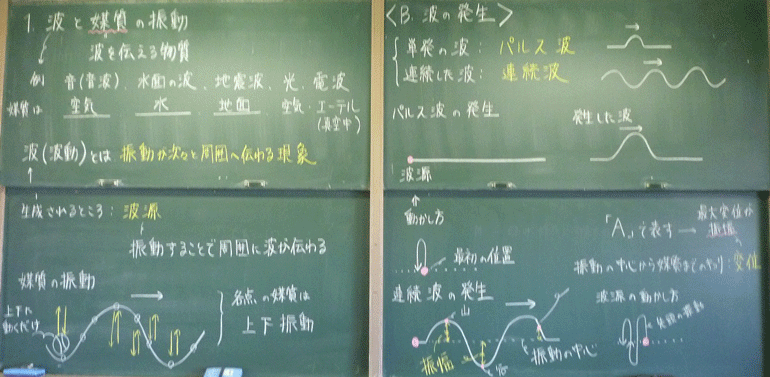 1. 波と媒質の振動
波を伝える物質
例 音(音波)、水面の波、地震波、光、電波
媒質は 空気 水 地面 空気・エーテル
(真空中)
波(波動)とは 振動が次々と周囲へ伝わる現象
生成されるところ:波源
振動することで周囲に波が伝わる
媒質の振動
上下に
動くだけ
各点の媒質は
上下振動
<B. 波の発生>
単発の波:パルス波
連続した波:連続波
パルス波の発生
発生した波
波源
動かし方
最初の位置
「A」で表す → 最大変位が
振幅
振動の中心から媒質までのキョリ:変位
連続波の発生
山
振幅
谷
振動の中心
波源の動かし方